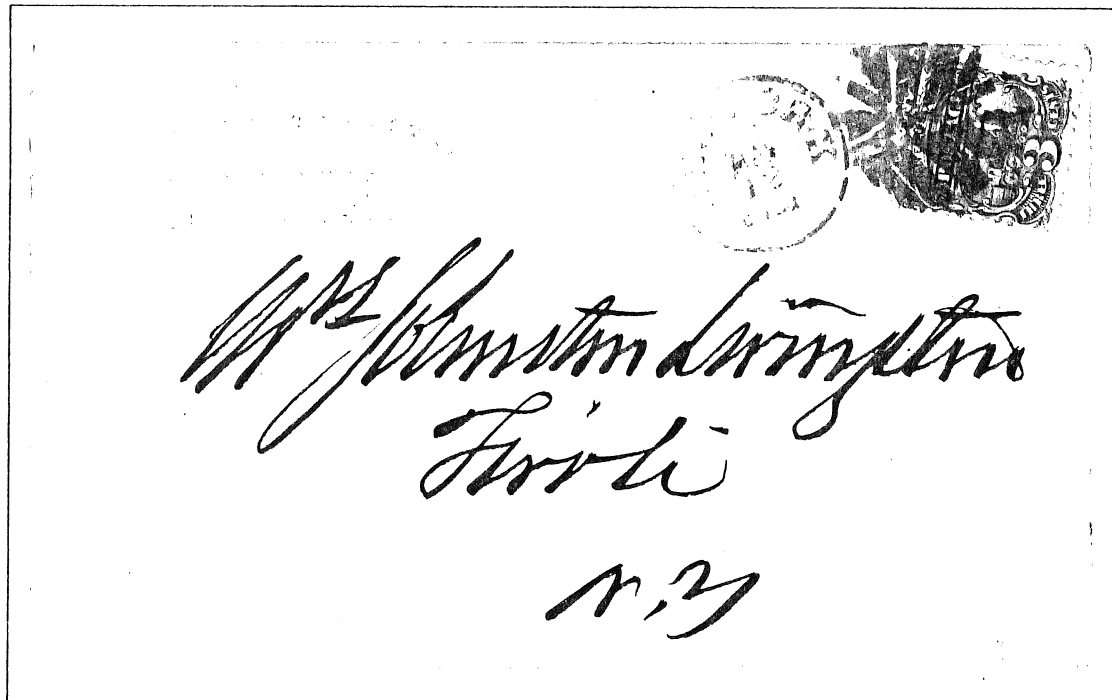 3
Mrs Johnston Livingston
Tivoli
N.Y